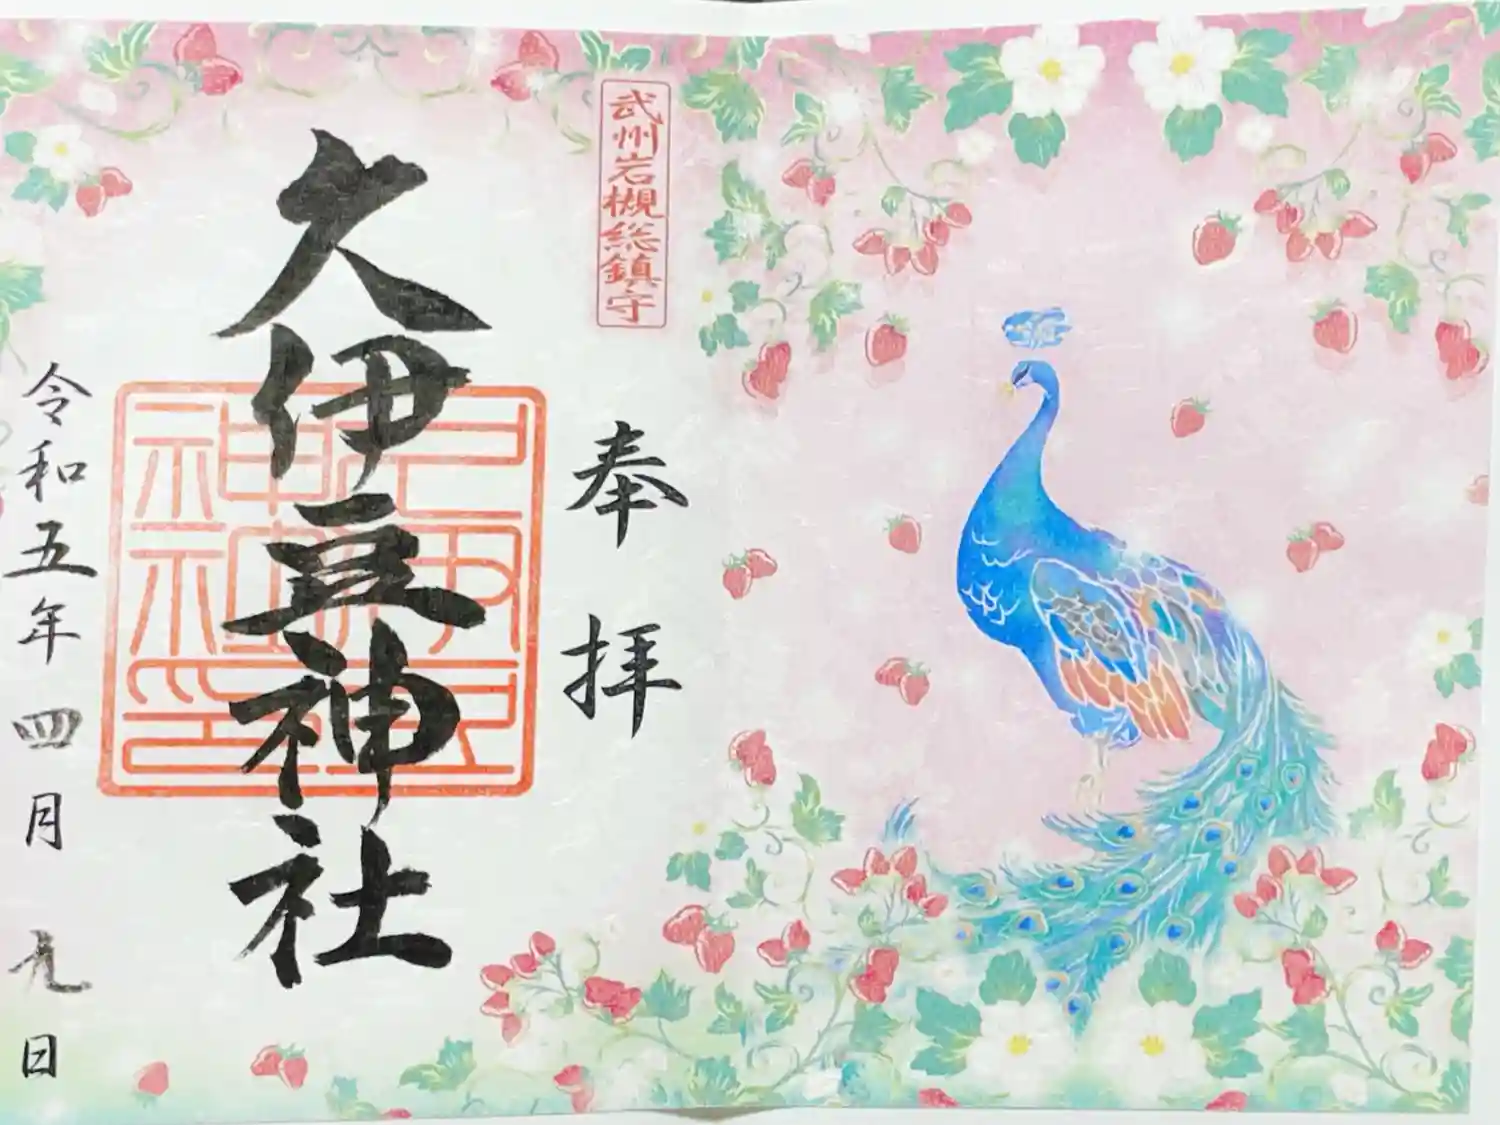 武州岩槻総鎮守
奉拝
久伊豆神社
令和五年四月九日